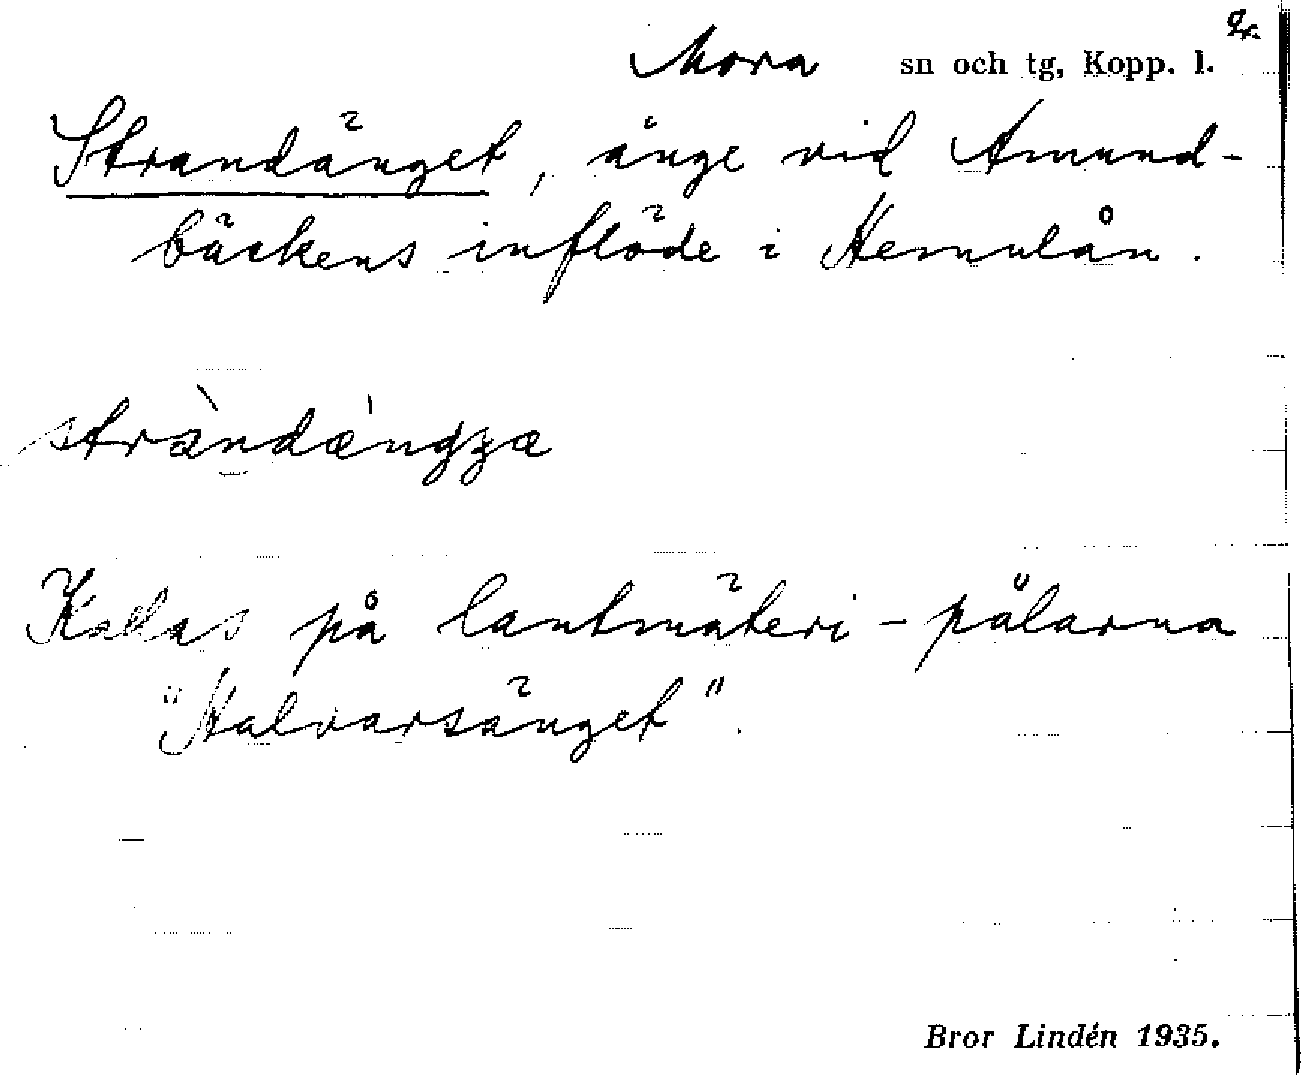 Mora sn och tg, Kopp. l.
Strandänget, änge vid Amund-
bäckens inflöde i Hemulån.
Kallas på lantmäteri-pålarna
"Halvarsänget".
Bror Lindén 1935.